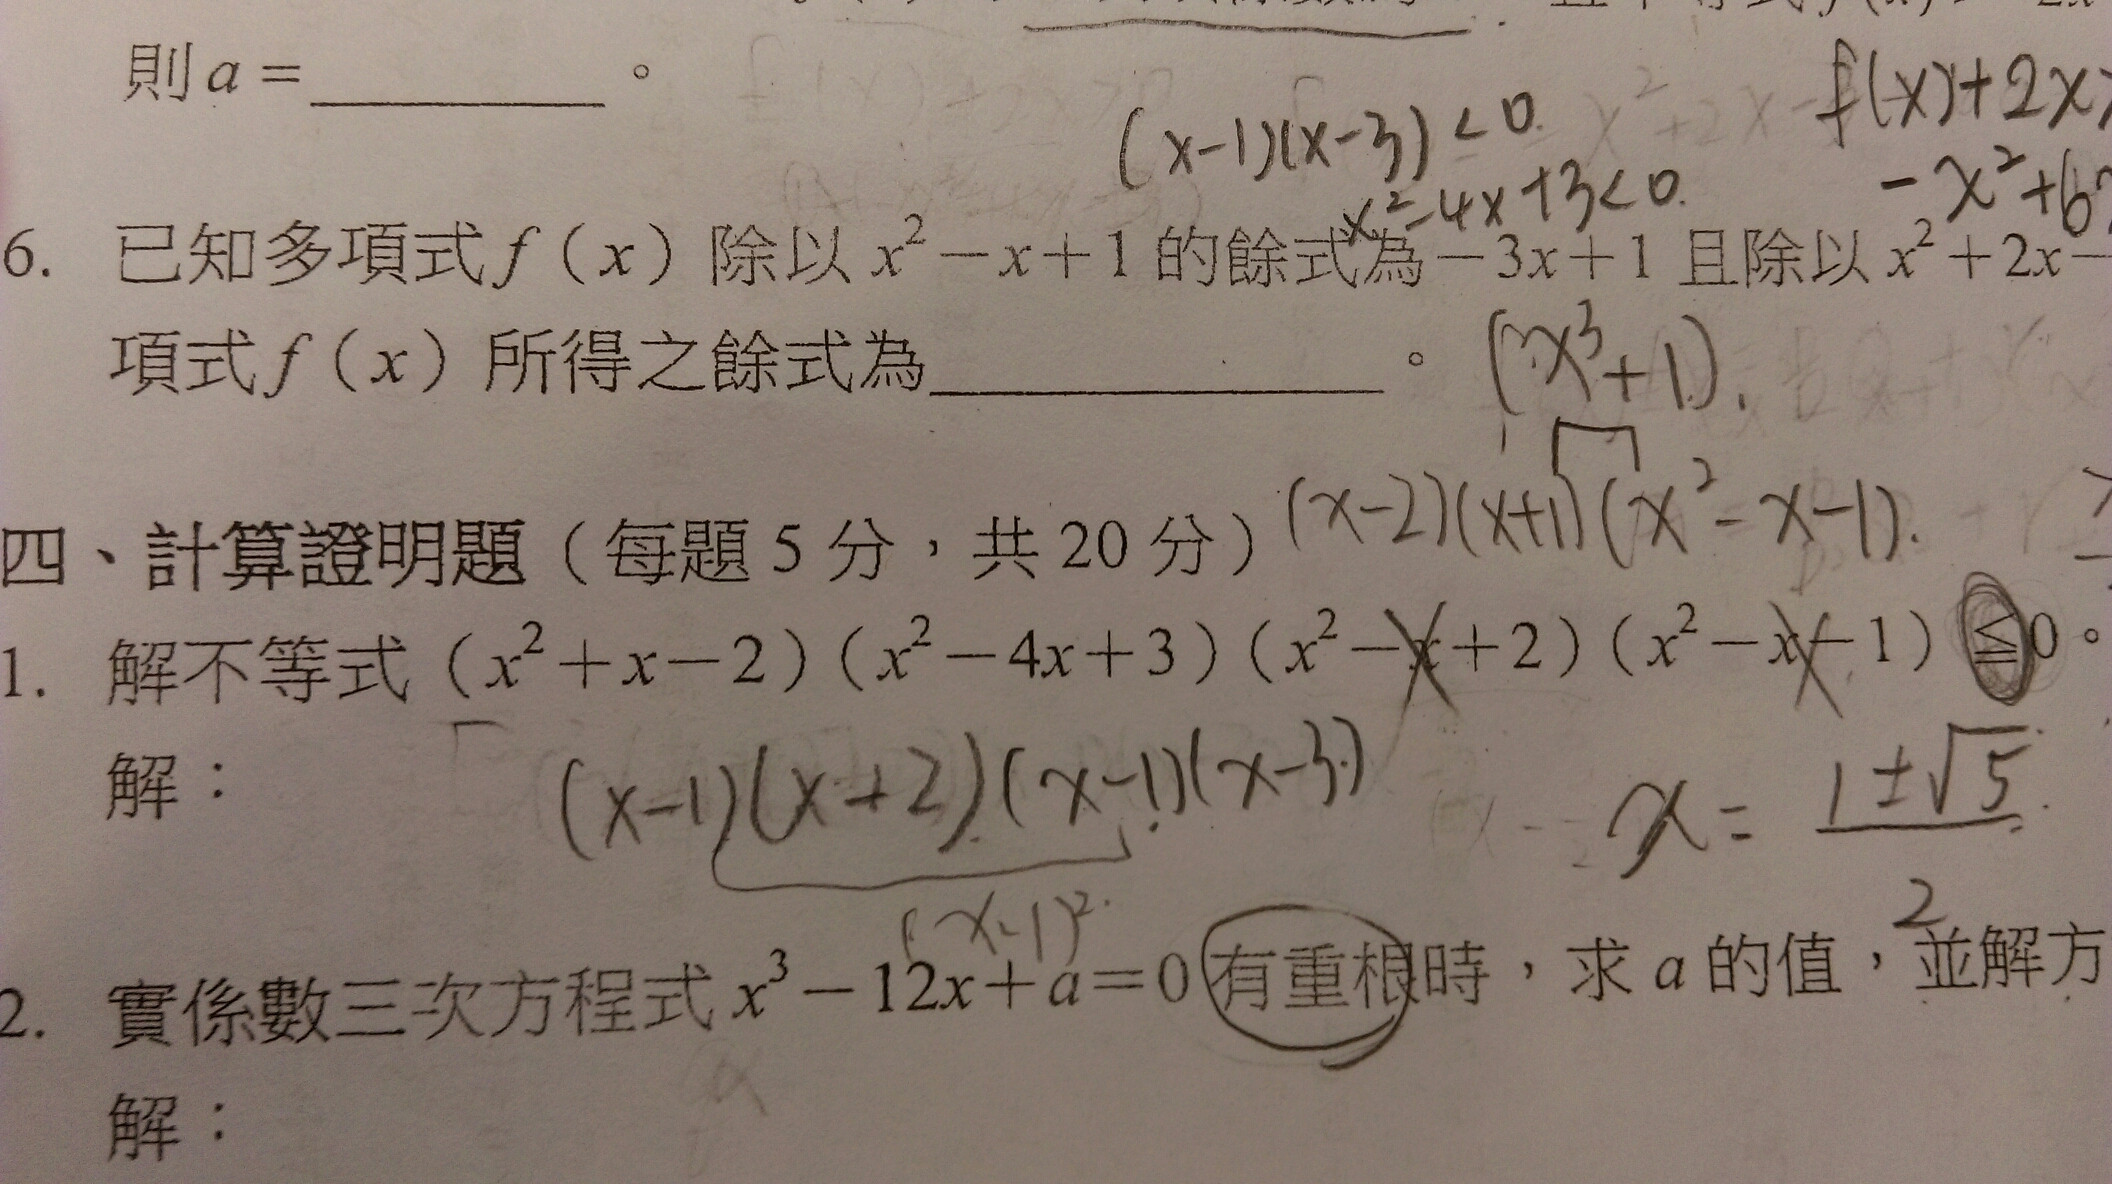 則 a = ________ 。
f(x)+2x>
(x-1)(x-3)<0.
-x²+6x
x²-4x+3<0.
6. 已知多項式 f（x）除以 x²－x＋1 的餘式為－3x＋1 且除以 x²＋2x－
項式 f（x）所得之餘式為____________。
(x³+1).
(x-2)(x+1)(x²-x-1).
四、計算證明題（每題 5 分，共 20 分）
1. 解不等式（x²＋x－2）（x²－4x＋3）（x²－x＋2）（x²－x－1）≦0。
解：
(x-1)(x+2)(x-1)(x-3)
x = (1±√5)/2
(x-1)².
2. 實係數三次方程式 x³－12x＋a＝0 有重根時，求 a 的值，並解方
解：